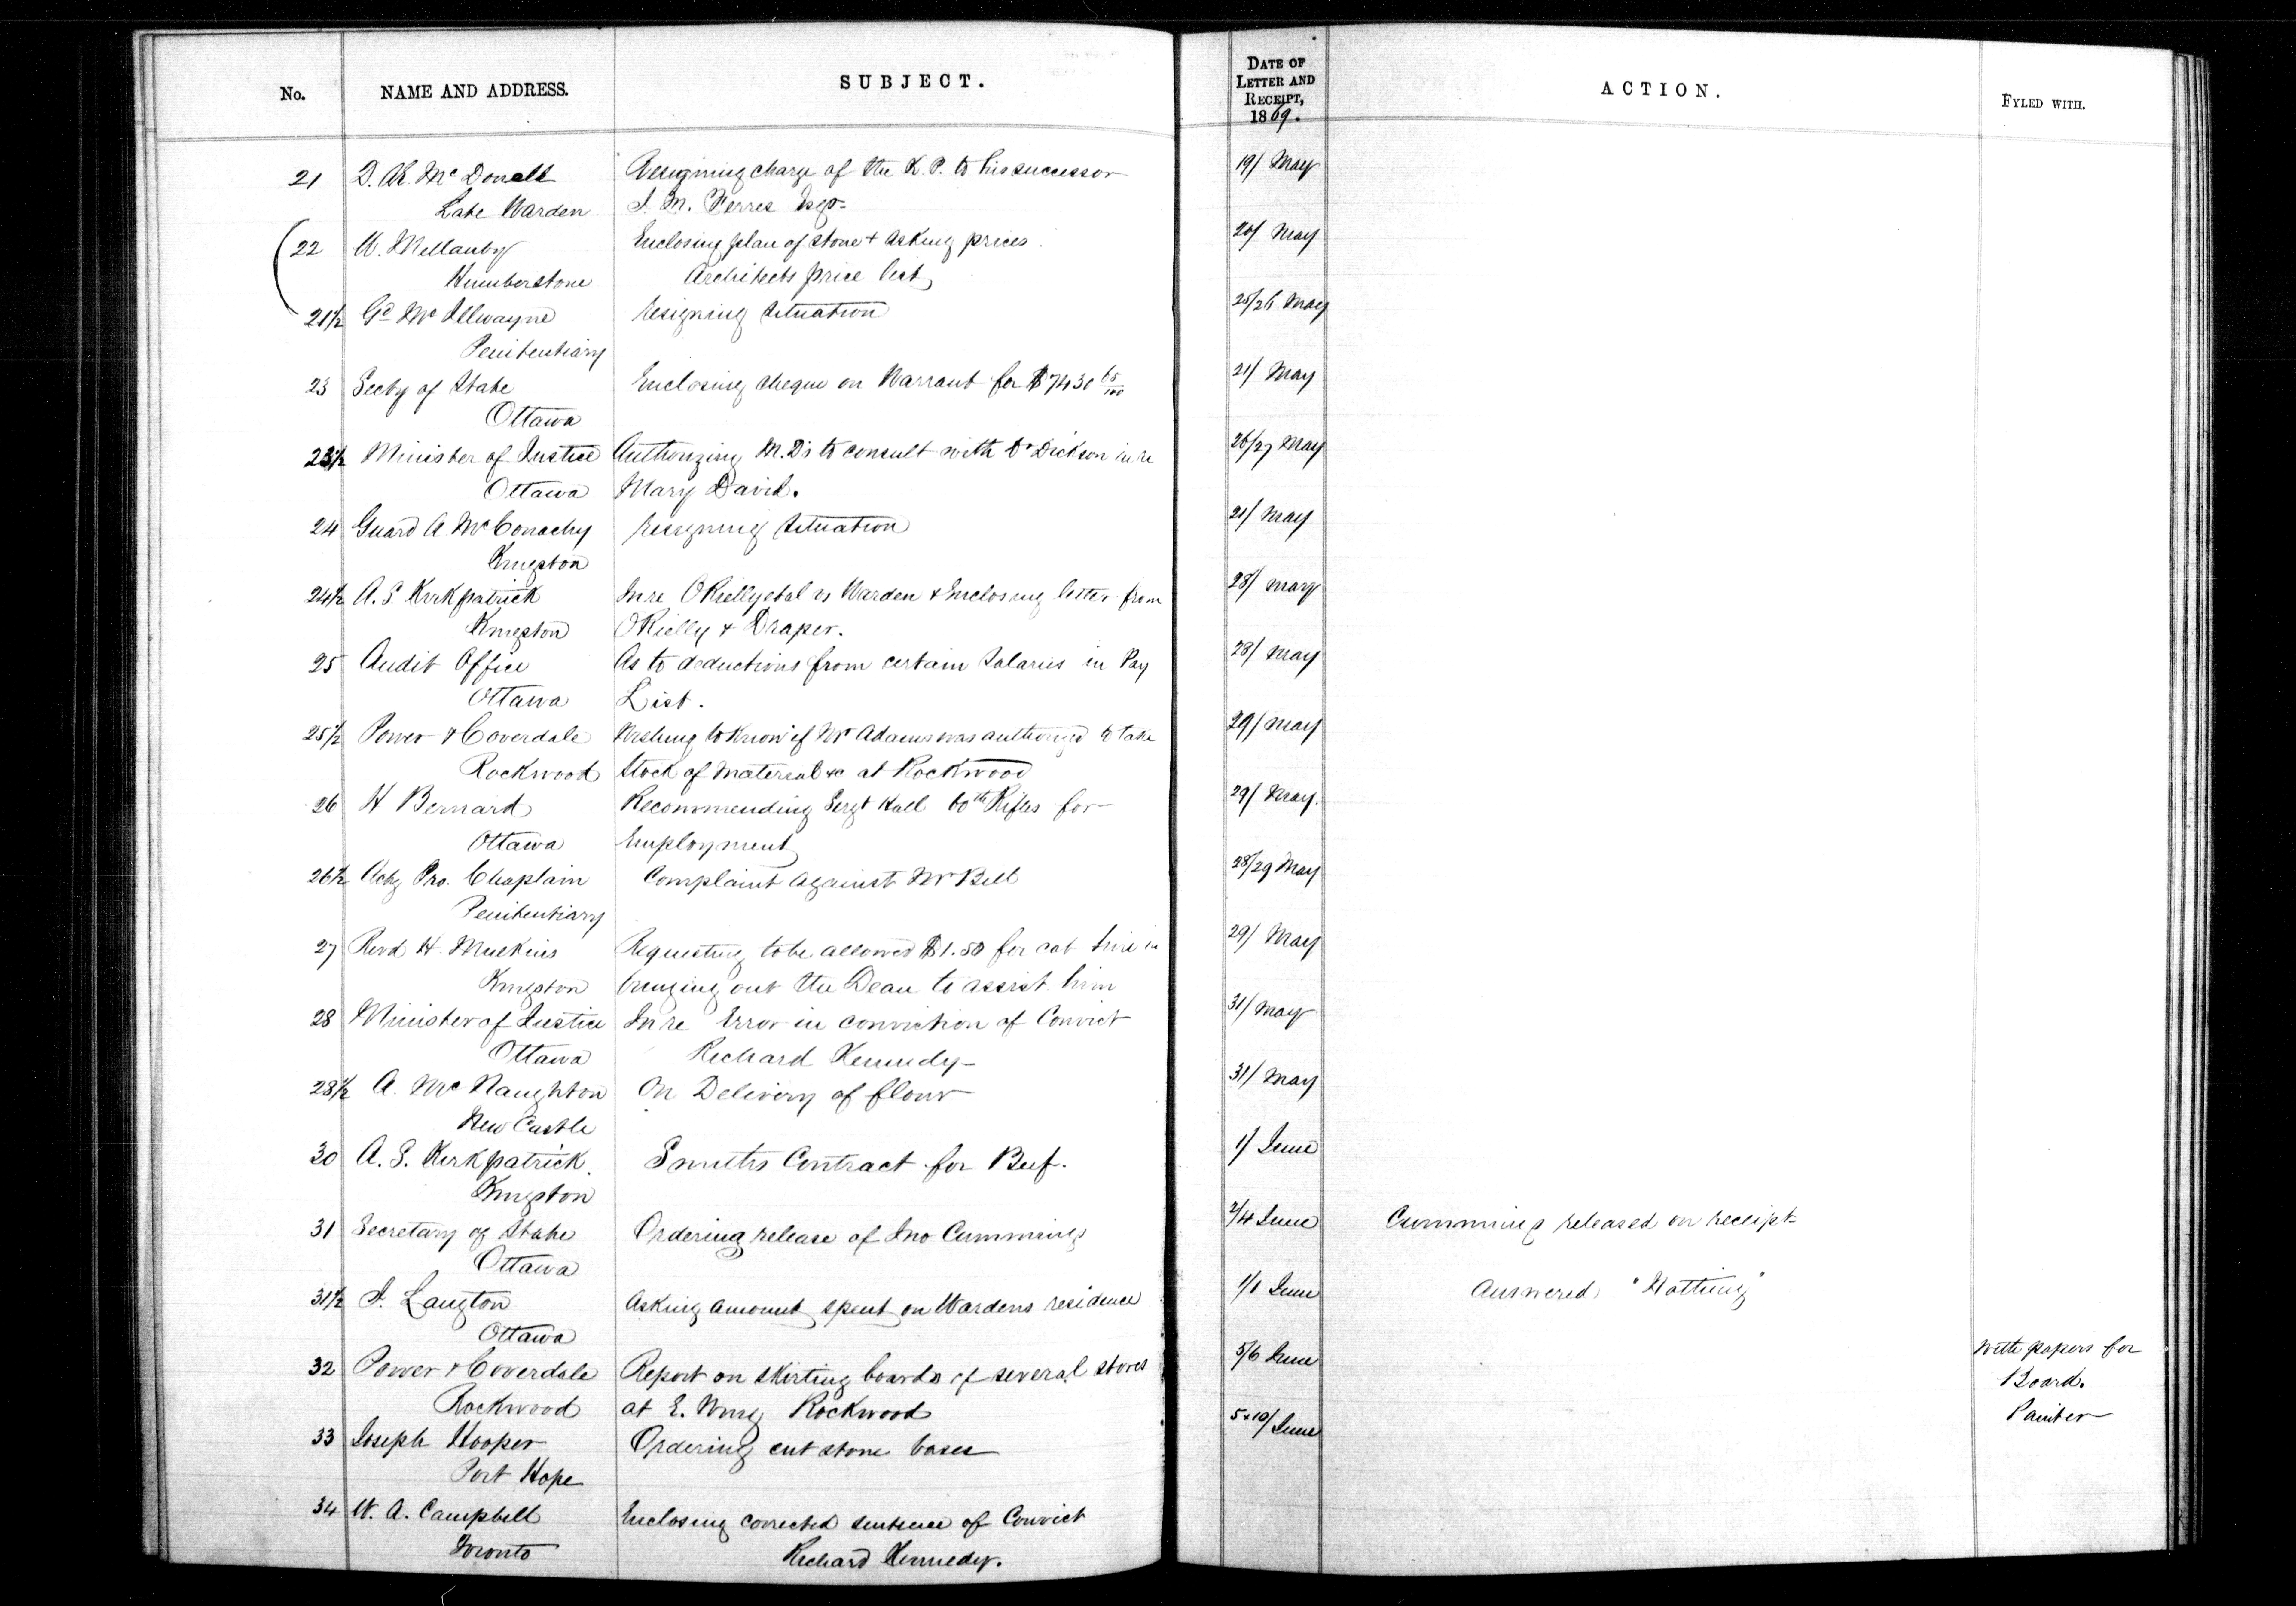 No.
NAME AND ADDRESS.
SUBJECT.
21 D. Æ. Mc Donell Resigning charge of the K. P. to his successor
Late Warden J. M. Ferres Esqr
22 W. Mellanby Enclosing plan of stone + asking prices
Humberstone Architects price list
21½ Gd Mc Ilwayne resigning situation
Penitentiary
23 Secty of State Enclosing cheque on Warrant for $7430 65/100
Ottawa
23½ Minister of Justice Authorizing M.D's to consult with Dr Dickson in re
Ottawa Mary David.
24 Guard A McConachy resigning situation
Kingston
24½ A. S. Kirkpatrick In re ORielly et al vs Warden & Enclosing letter from
Kingston ORielly & Draper.
25 Audit Office As to deductions from certain Salaries in Pay
Ottawa List.
25½ Power & Coverdale Wishing to know if Mr Adams was authorized to take
Rockwood Stock of material &c at Rockwood
26 H Bernard Recommending Sergt Hall 60th Rifles for
Ottawa Employment
26½ Actg Pro. Chaplain Complaint against Mr Bell
Penitentiary
27 Revd H. Mulkins Requesting to be allowed $1.50 for cab hire in
Kingston bringing out the Dean to assist him
28 Minister of Justice In re Error in conviction of Convict
Ottawa Richard Kennedy
28½ A. Mc Naughton On Delivery of flour
New Castle
30 A. S. Kirkpatrick. Smiths Contract for Beef.
Kingston
31 Secretary of State Ordering release of Jno Cummings
Ottawa
31½ J. Langton Asking amount spent on Wardens residence
Ottawa
32 Power & Coverdale Report on skirting boards of several stores
Rockwood at E. Wing Rockwood
33 Joseph Hooper Ordering cut stone bases
Port Hope
34 W. A. Campbell Enclosing corrected sentence of Convict
Toronto Richard Kennedy.
DATE OF
LETTER AND
RECEIPT,
1869.
ACTION.
FYLED WITH.
19/ May
20/ May
25/26 May
21/ May
26/27 May
21/ May
28/ May
28/ May
29/ May
29/ May.
28/29 May
29/ May
31/ May
31/ May
1/ June
2/4 June Cummings released on receipt
1/1 June Answered "Nothing"
5/6 June With papers for
Board.
5 & 10/ June Painter